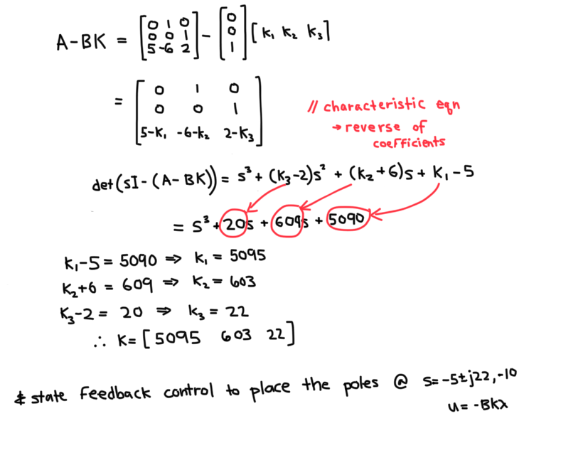 A-BK = [0 1 0; 0 0 1; 5 -6 2] - [0; 0; 1] [k₁ k₂ k₃]
= [0 1 0; 0 0 1; 5-k₁ -6-k₂ 2-k₃]
// characteristic eqn
→ reverse of
coefficients
det(sI-(A-BK)) = s³ + (k₃-2)s² + (k₂+6)s + k₁-5
= s³ + 20s + 609s + 5090
k₁-5 = 5090 ⇒ k₁ = 5095
k₂+6 = 609 ⇒ k₂ = 603
k₃-2 = 20 ⇒ k₃ = 22
∴ K = [5095 603 22]
state feedback control to place the poles @ s=-5±j22,-10
u = -Bkx